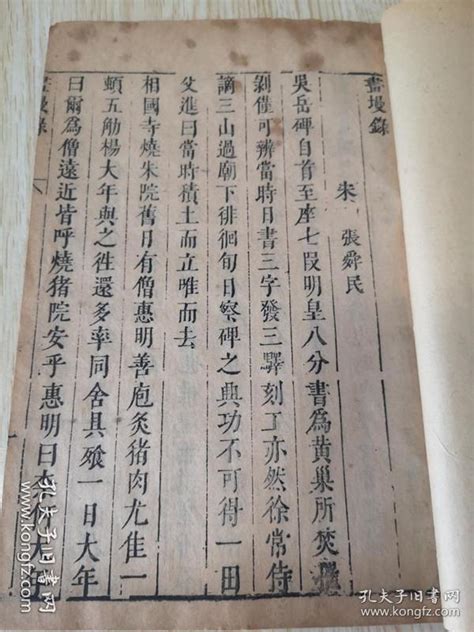 畫墁錄
宋 張舜民
吳岳碑自首至座七段明皇八分書為黃巢所焚
剝僅可辨當時日書三字發三驛刻工亦然徐常侍
謫三山過廟下徘徊旬日察碑之興功不可得一田
父進曰當時積土而立唯而去
相國寺燒朱院舊日有僧惠明善庖炙猪肉尤佳一
頓五觔楊大年與之徃還多率同舍具飱一日大年
曰爾為僧遠近皆呼燒猪院安乎惠明曰
畫墁錄
孔夫子旧书网
www.kongfz.com
孔夫子旧书网
www.kongfz.com